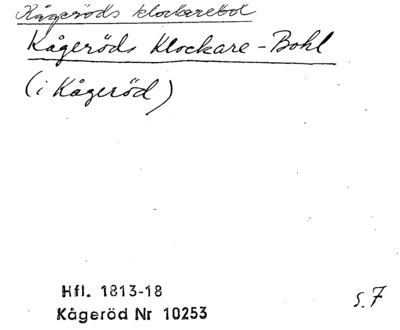 Kågeröds klockarebol
Kågeröds Klockare-Bohl
(i Kågeröd)
Hfl. 1813-18
s. 7
Kågeröd Nr 10253